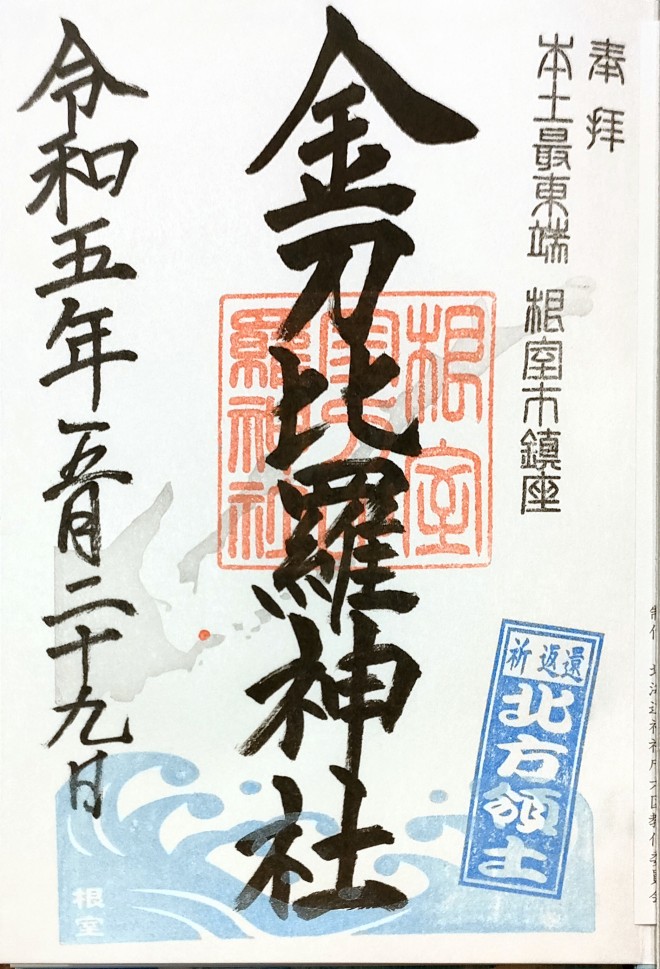 奉拝
本土最東端 根室市鎮座
金刀比羅神社
根室金刀比羅神社
令和五年五月二十九日
祈返還
北方領土
根室